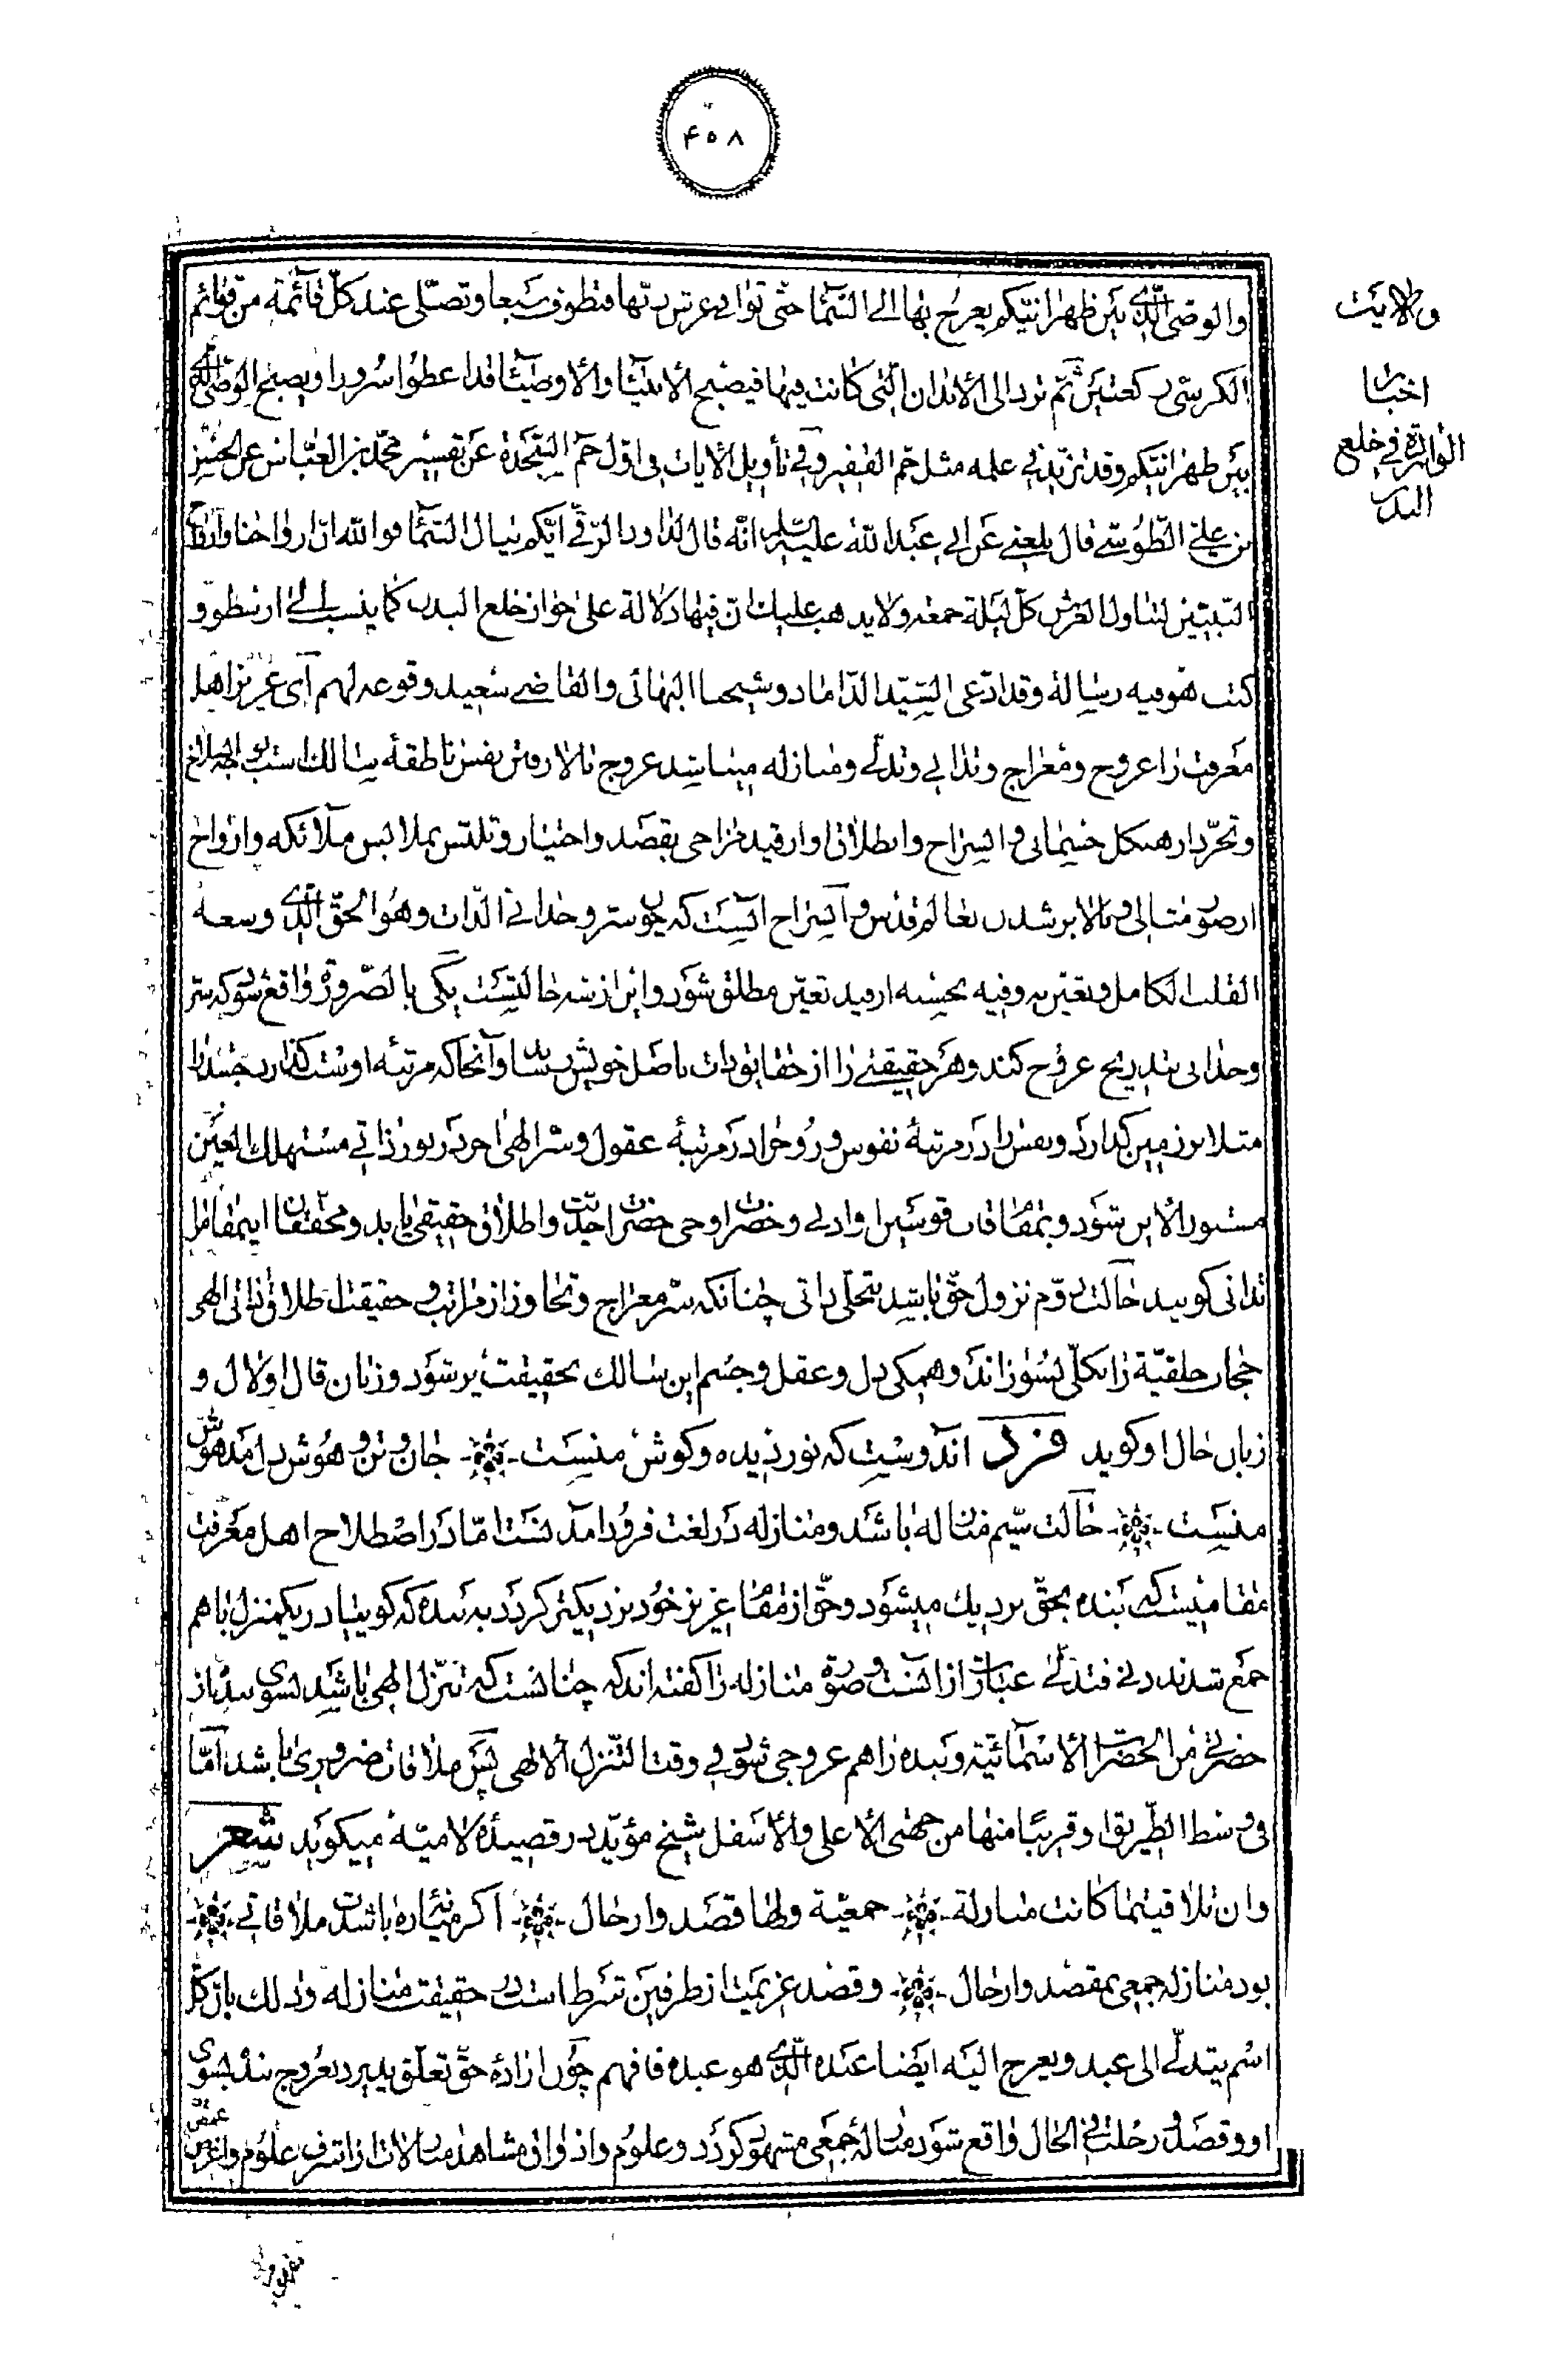 ۴۵۸
ولایت
اخبار
الواردة فی خلع
البدن
والوصی الذی بین ظهرانیکم یعرج بها الی السماء حتی توافی عرش ربها فتطوف سبعا وتصلی عند کل قائمة من قوائم
الکرسی رکعتین ثم ترد الی الابدان التی کانت فیها فیصبح الانبیاء والاوصیاء قد اعطوا سرورا ویصبح الوصی الذی
بین ظهرانیکم وقد زید فی علمه مثل جم الغفیر وفی تأویل الایات فی اول حم السجدة عن تفسیر محمد بن العباس عن الحسین
بن علی الطوسی قال بلغنی عن ابی عبد الله علیه السلم انه قال لداود الرقی ایکم ینال السماء فوالله ان ارواحنا وارواح
النبیین لتناول العرش کل لیلة جمعة ولا یذهب علیک ان فیها دلالة علی جواز خلع البدن کما ینسب الی ارسطو و
کتب هو فیه رسالة وقد ادعی السید الداماد وشیخنا البهائی والقاضی سعید وقوعه لهم ای عزیز اهل
معرفت را عروج ومعراج وتدانی وتدلی ومنازله میباشد عروج بالا رفتن نفس ناطقه سالک است
وتجرد از هیکل جسمانی و انسراح واطلاق او از قید مزاجی بقصد واختیار وتلبس بملابس ملائکه وارواح
از صور مثالی و بالا بر شدن بعالم قدس و انسراح انیست که چون سر وحدانی الذات وهو الحق الذی وسعه
القلب الکامل وتعین به وفیه بحسبه از قید تعین مطلق شود واین از سه حالتست یکی بالضرورة واقع شود که سر
وحدانی بتدریج عروج کند وهر حقیقتی را از حقایق ذات باصل خویش رساند وآنجا که مرتبه اوست گذارد جسد را
مثلا بر زمین گذارد ونفس را در مرتبهٔ نفوس و روح را در مرتبهٔ عقول وسر الهی او در نور ذاتی مستهلک العین
مستور الاین شود وبمقام قاب قوسین او ادنی وحضرت او حی حضرت احدیت واطلاق حقیقی یابد ومحققان اینمقام را
تدانی گویند حالت دوم نزول حق باشد بتجلی ذاتی چنانکه سر معراج وتجاوز از مراتب و حقیقت اطلاق ذاتی الهی
حجاب خلقیة را بکلی بسوزاند وهمگی دل وعقل وجسم این سالک بحقیقت پر شود وزبان قال او لال و
زبان حال او گوید فرد آندوست که نور دیده وگوش منست جان و تن و هوش دل مدهوش
منست حالت سیم منازله باشد ومنازله در لغت فرود آمدنست اما در اصطلاح اهل معرفت
مقامیست که بنده بحق نزدیک میشود وحق از مقام عزیز خود نزدیکتر گردد به بنده که گوییا در یکمنزل با هم
جمع شدند دنی فتدلی عبارت از آنست و صورة منازله را گفته اندکه چنانست که تنزل الهی باشد بسوی بنده از
حضرتی من الحضرات الاسمائیة وبنده را هم عروجی شود فی وقت التنزل الالهی پس ملاقات ضروری باشد اما
فی وسط الطریق او قریبا منها من جهتی الاعلی والاسفل شیخ مؤید در قصیدهٔ لامیه میگوید شعر
وان تلاقیتما کانت منازلة جمعیة ولها قصد وارحال اگر میانه باشدت ملاقاتی
بود منازله جمعی بقصد وارحال وقصد عزیمت از طرفین شرط است در حقیقت منازله وذلک بان کل
اسم یتدلی الی عبد ویعرج الیه ایضا عنده الذی هو عبده فافهم چون ارادهٔ حق تعلق پذیرد بعروج بنده بسوی
او وقصد و رحلت فی الحال واقع شود منازلهٔ جمعی مشهود گردد وعلوم واذواق مشاهد منازلات از اشرف علوم